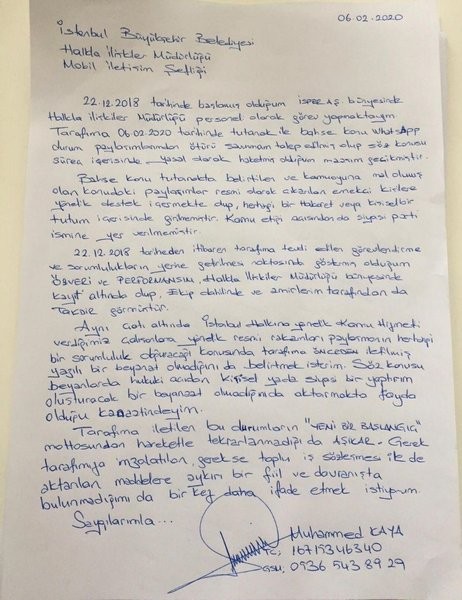 06.02.2020
İstanbul Büyükşehir Belediyesi
Halkla ilişkiler Müdürlüğü
Mobil iletişim Şefliği
22.12.2018 tarihinde başlamış olduğum İSPER AŞ bünyesinde
Halkla ilişkiler Müdürlüğü personel olarak görev yapmaktayım
Tarafıma 06.02.2020 tarihinde tutanak ile bahse konu WhatsApp
durum paylaşımlarımdan ötürü savunmam talep edilmiş olup söz konusu
süreç içerisinde yasal olarak
Bahse konu tutanakta belirtilen ve kamuoyuna mal olmuş
olan konudaki paylaşımlar resmi olarak çıkarılan emekçi kişilere
yönelik destek içermekte olup, herhangi bir hakaret veya kişisel bir
tutum içerisinde girilmemiştir. Kamu etiği açısından da siyasi parti
ismine yer verilmemiştir.
22.12.2018 tarihinden itibaren tarafıma tevdi edilen görevlendirme
ve sorumlulukların yerine getirilmesi noktasında göstermiş olduğum
ÖZVERİ ve PERFORMANSIM, Halkla İlişkiler Müdürlüğü bünyesinde
kayıt altında olup, Ekip dahilinde ve amirlerim tarafından da
TAKDİR görmüştür.
Aynı çatı altında İstanbul Halkına yönelik Kamu Hizmeti
verdiğimiz çalışanlara yönelik resmi rakamları paylaşmanın herhangi
bir sorumluluk doğuracağı konusunda tarafıma ÖNCEDEN iletilmiş
yazılı bir beyanat olmadığını da belirtmek isterim. Söz konusu
beyanlarda hukuki açıdan kişisel yada siyasi bir yaptırım
oluşturacak bir beyanat olmadığında aktarmakta fayda
olduğu kanaatindeyim.
Tarafıma iletilen bu durumların "YENİ BİR BAŞLANGIÇ"
mottosundan hareketle tekrarlanmadığı da AŞİKAR. Gerek
tarafımıza imzalatılan, gerekse toplu iş sözleşmesi ile de
aktarılan maddelere aykırı bir fiil ve davranışta
bulunmadığımı da bir kez daha ifade etmek istiyorum
Saygılarımla...
Muhammed KAYA
TC; 16715346340
GSM; 0536 543 89 29